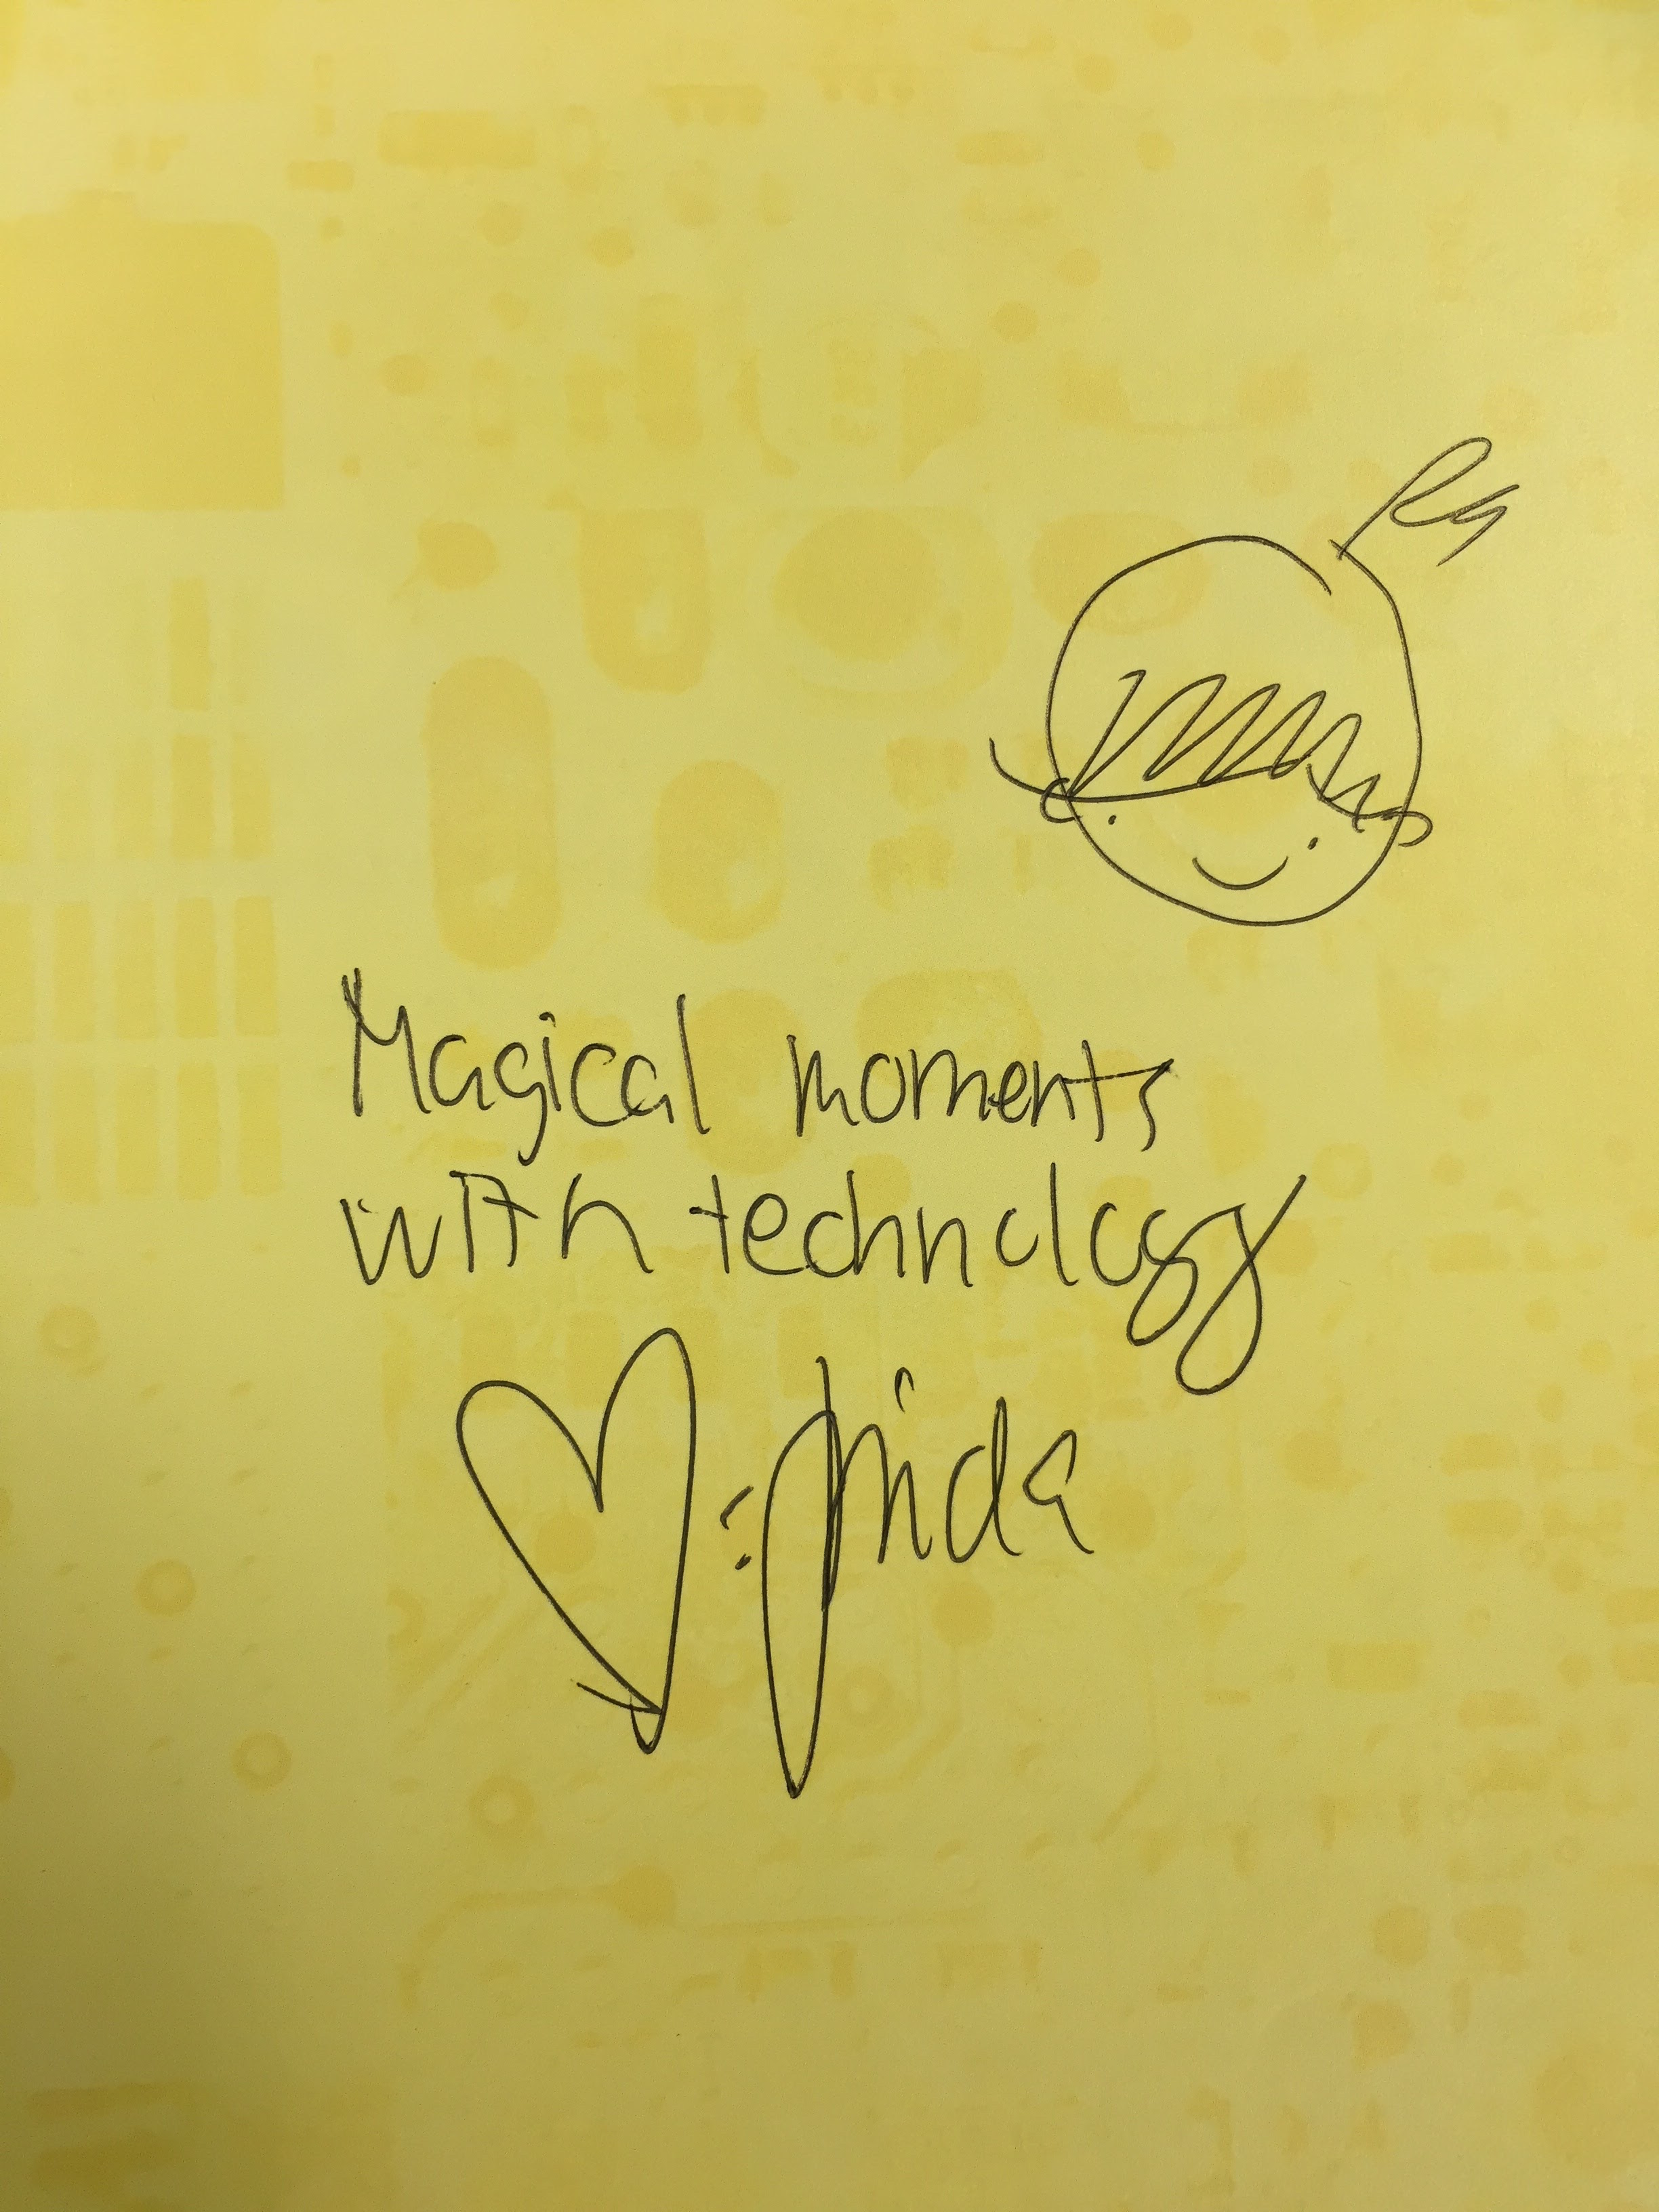 Magical moments
with technology
♡: Linda